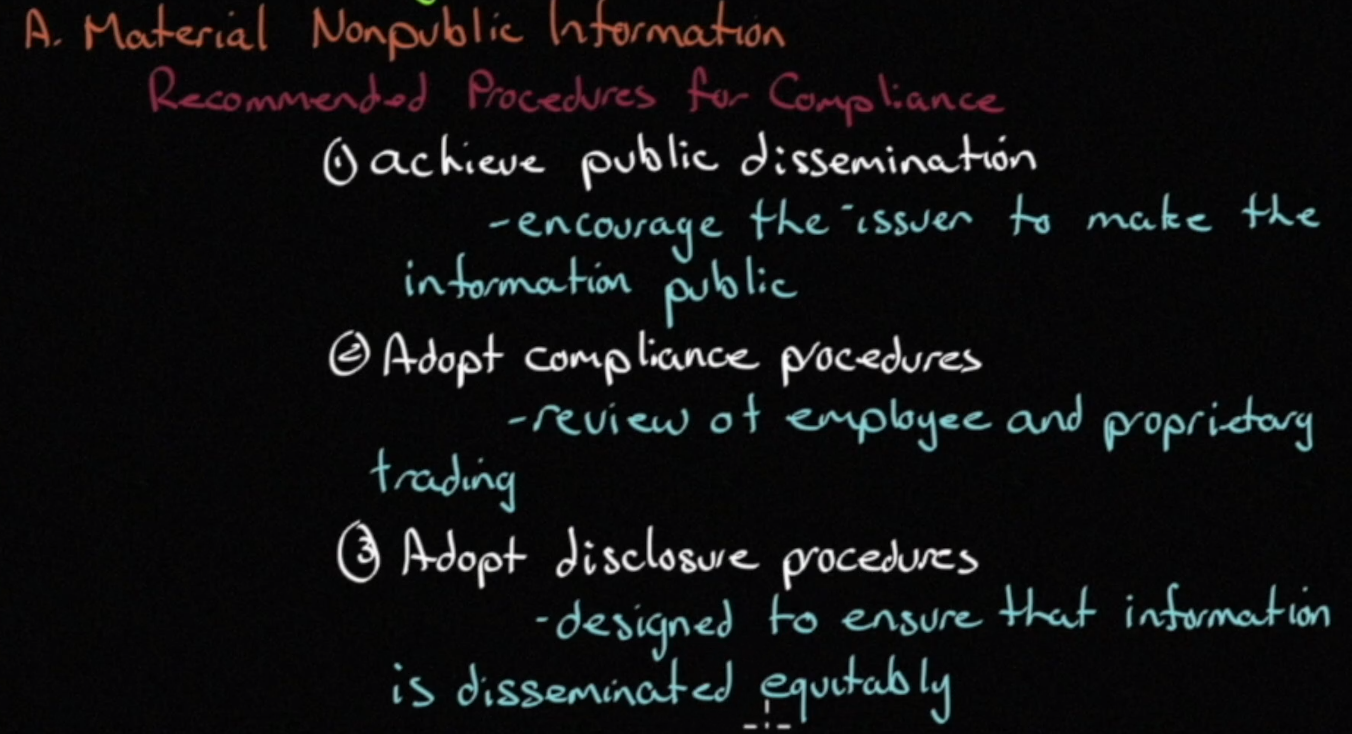 A. Material Nonpublic Information
Recommended Procedures for Compliance
① achieve public dissemination
- encourage the issuer to make the
information public
② Adopt compliance procedures
- review of employee and proprietary
trading
③ Adopt disclosure procedures
- designed to ensure that information
is disseminated equitably